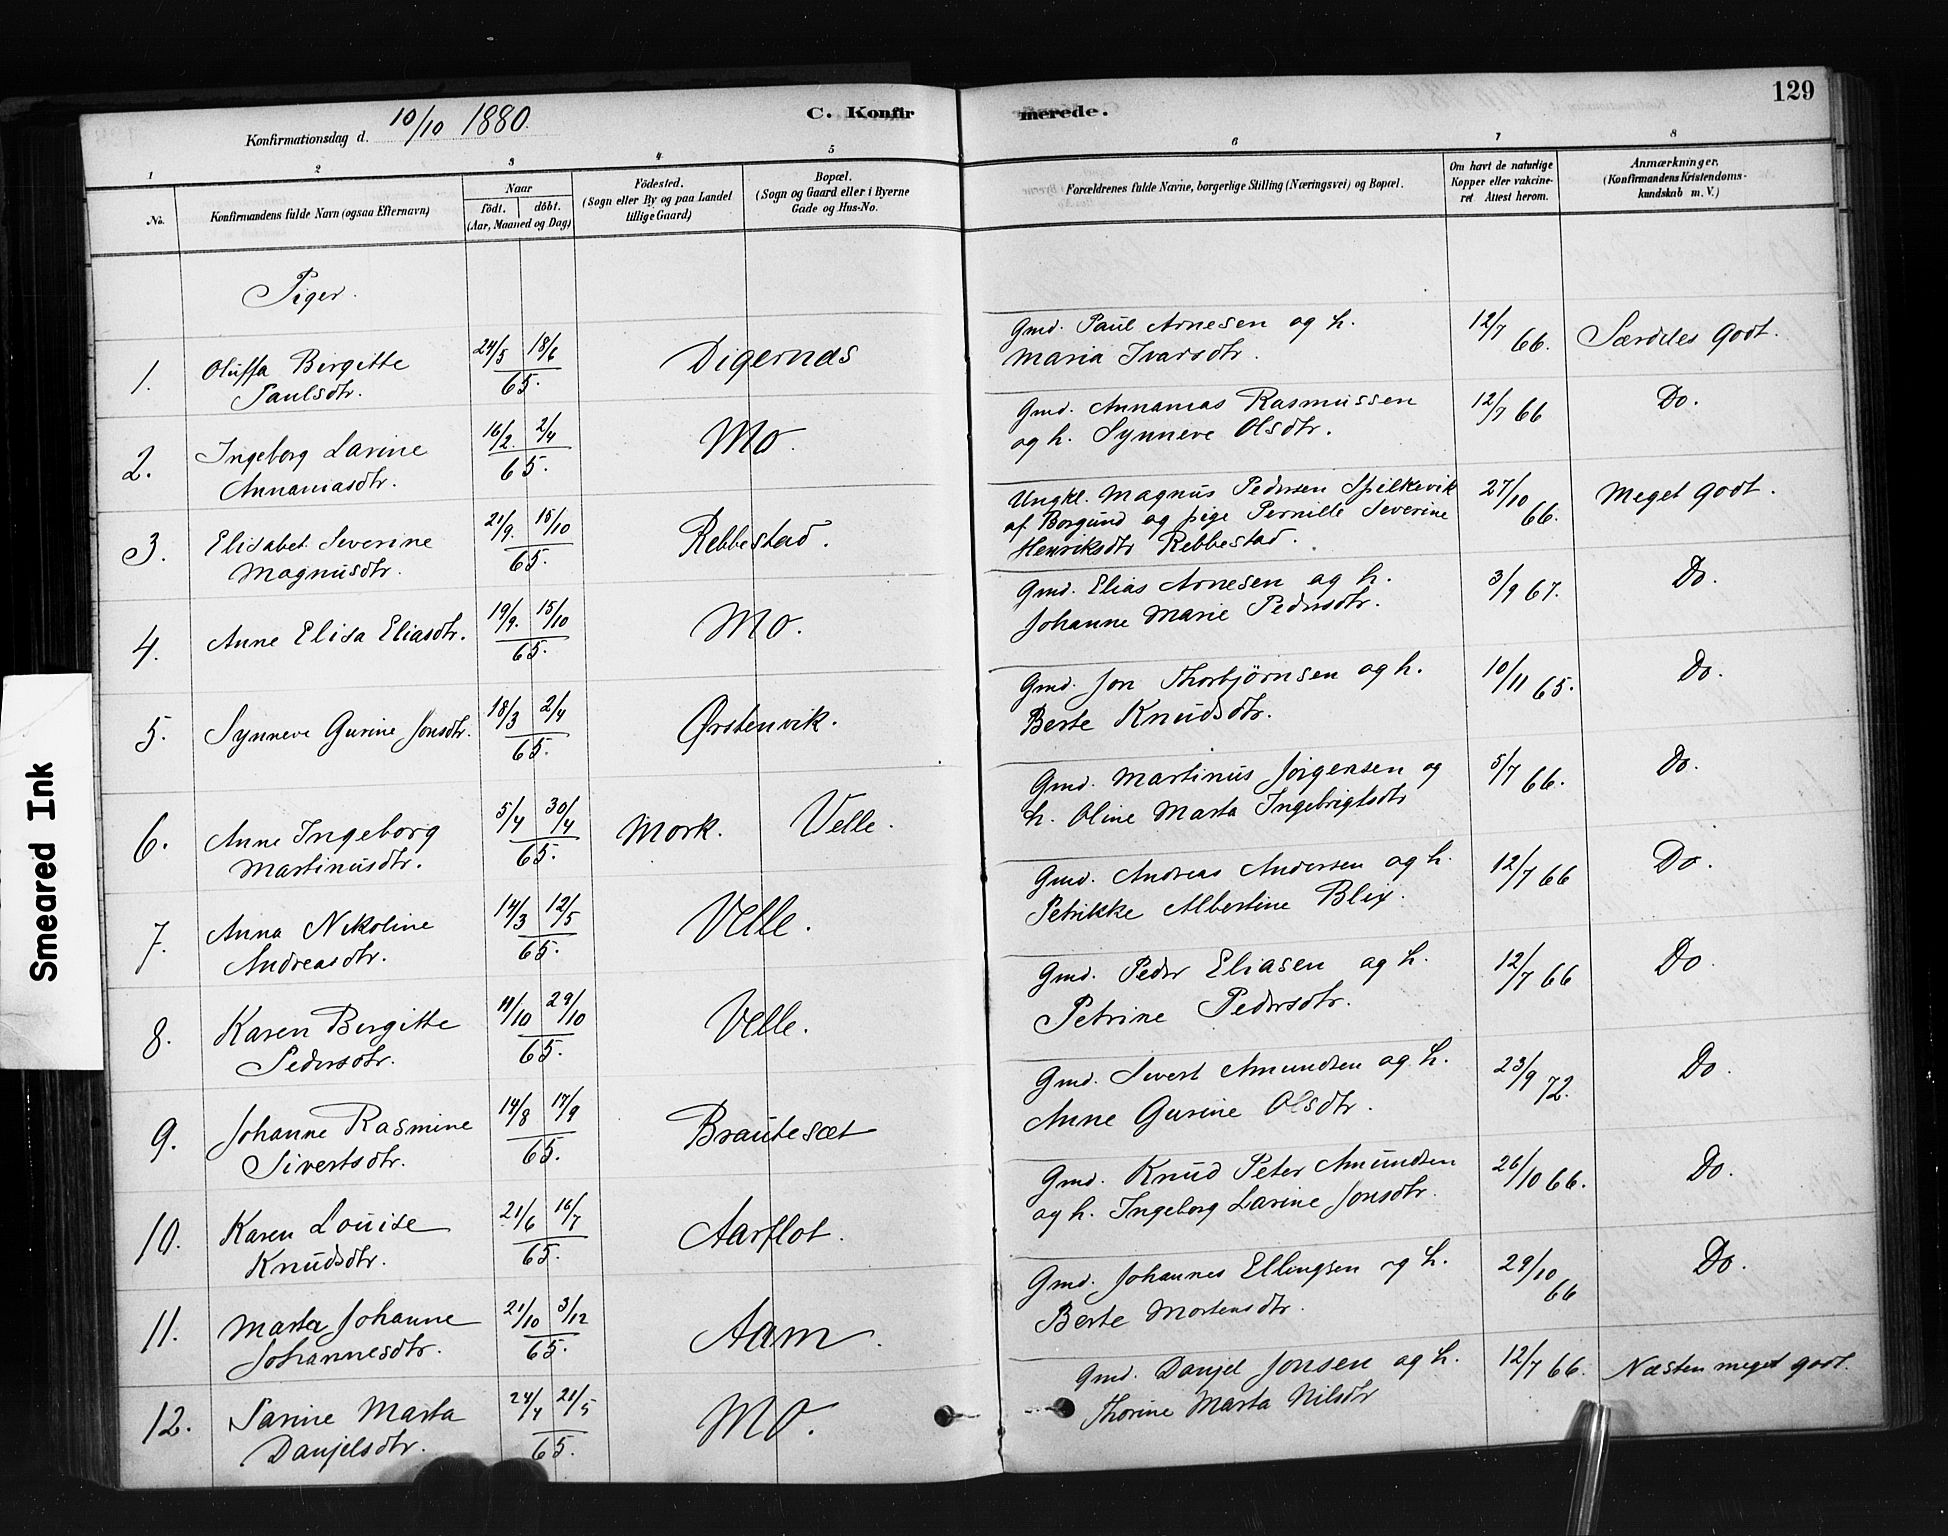 129
Konfirmationsdag d. 10/10 1880.
C. Konfirmerede.
1 2 3 4 5 6 7 8
No.
Konfirmandens fulde Navn (ogsaa Efternavn)
Naar
födt. döbt.
(Aar, Maaned og Dag)
Födested.
(Sogn eller By og paa Landet
tillige Gaard)
Bopæl.
(Sogn og Gaard eller i Byerne
Gade og Hus-No.
Forældrenes fulde Navne, borgerlige Stilling (Næringsvei) og Bopæl.
Om havt de naturlige
Kopper eller vakcine-
ret Attest herom.
Anmærkninger.
(Konfirmandens Kristendoms-
kundskab m. V.)
Piger.
1. Oluffa Birgitte
Paulsdtr.
24/5 18/6
65.
Digernes
Gmd. Paul Arnesen og h.
Maria Ivarsdtr.
12/7 66.
Særdeles Godt.
2. Ingeborg Larine
Annaniasdtr.
16/2. 2/4
65.
Mo.
Gmd. Annanias Rasmussen
og h. Synneve Olsdtr.
12/7 66
Do.
3. Elisabet Severine
Magnusdtr.
21/9. 15/10
65.
Rebbestad.
Ungkl. Magnus Pedersen Spilkevik
af Borgund og pige Pernille Severine
Henriksdtr Rebbestad.
27/10 66.
Meget Godt.
4. Anne Elisa Eliasdtr.
19/9. 15/10
65.
Mo.
Gmd. Elias Arnesen og h.
Johanne Marie Pedersdtr.
3/9 67.
Do.
5. Synneve Gurine Jonsdtr.
18/3 2/4
65.
Ørstenvik.
Gmd. Jon Thorbjørnsen og h.
Berte Knudsdtr.
10/11 65.
Do.
6. Anne Ingeborg
Martinusdtr.
5/4 30/4
65.
Mork. Velle.
Gmd. Martinus Jörgensen og
h. Oline Marta Ingebrigtsdtr
5/7 66.
Do.
7. Anna Nikoline
Andreasdtr.
14/3 12/5
65.
Velle.
Gmd. Andreas Andersen og h.
Petrikke Albertine Blix.
12/7 66
Do.
8. Karen Birgitte
Pedersdtr.
11/10 29/10
65.
Velle.
Gmd. Peder Eliasen og h.
Petrine Pedersdtr.
12/7 66
Do.
9. Johanne Rasmine
Sivertsdtr.
14/8 17/9
65.
Brautesæt
Gmd. Sivert Amundsen og h.
Anne Gurine Olsdtr.
23/9 72.
Do.
10. Karen Louise
Knudsdtr.
21/6 16/7
65.
Aarflot.
Gmd. Knud Peter Amundsen
og h. Ingeborg Larine Jonsdtr.
26/10 66.
Do.
11. Marta Johanne
Johannesdtr.
21/10 3/12
65.
Aam.
Gmd. Johannes Ellingsen og h.
Berte Mortensdtr.
29/10 66
Do.
12. Sarine Marta
Danjelsdtr.
24/4 21/5
65.
Mo.
Gmd. Danjel Jonsen og h.
Thorine Marta Nilsdtr
12/7 66.
Næsten meget godt.
Smeared Ink